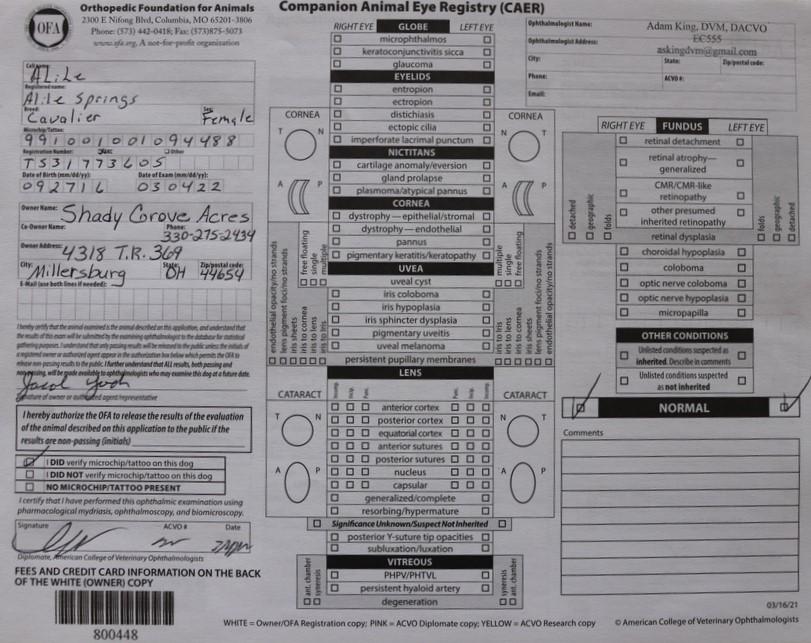 Orthopedic Foundation for Animals
2300 E Nifong Blvd, Columbia, MO 65201-3806
Phone: (573) 442-0418; Fax: (573)875-5073
www.ofa.org, A not-for-profit organization
OFA
Companion Animal Eye Registry (CAER)
Call name:
Alile
Registered name:
Alile Springs
Breed: Sex:
Cavalier Female
Microchip/Tattoo:
991001001094488
Registration Number: Other
TS31773605
Date of Birth (mm/dd/yy): Date of Exam (mm/dd/yy):
092716 030422
Owner Name: Shady Grove Acres
Co-Owner Name: Phone: 330-275-2434
Owner Address: 4318 T.R. 369
City: State: Zip/postal code:
Millersburg OH 44654
E-Mail (use both lines if needed):
I hereby certify that the animal examined is the animal described on this application, and understand that
the results of this exam will be submitted by the examining ophthalmologist to the database for statistical
gathering purposes. I understand that only passing results will be released to the public unless the initials of
a registered owner or authorized agent appear in the authorization box below which permits the OFA to
release non-passing results to the public. I further understand that ALL results, both passing and
non-passing, will be made available to ophthalmologists who may examine this dog at a future date.
Signature of owner or authorized agent/representative
I hereby authorize the OFA to release the results of the evaluation
of the animal described on this application to the public if the
results are non-passing (initials)
I DID verify microchip/tattoo on this dog
I DID NOT verify microchip/tattoo on this dog
NO MICROCHIP/TATTOO PRESENT
I certify that I have performed this ophthalmic examination using
pharmacological mydriasis, ophthalmoscopy, and biomicroscopy.
Signature ACVO # Date
Diplomate, American College of Veterinary Ophthalmologists
FEES AND CREDIT CARD INFORMATION ON THE BACK
OF THE WHITE (OWNER) COPY
800448
RIGHT EYE GLOBE LEFT EYE
microphthalmos
keratoconjunctivitis sicca
glaucoma
EYELIDS
entropion
ectropion
distichiasis
ectopic cilia
imperforate lacrimal punctum
NICTITANS
cartilage anomaly/eversion
gland prolapse
plasmoma/atypical pannus
CORNEA
dystrophy — epithelial/stromal
dystrophy — endothelial
pannus
pigmentary keratitis/keratopathy
UVEA
uveal cyst
iris coloboma
iris hypoplasia
iris sphincter dysplasia
pigmentary uveitis
uveal melanoma
persistent pupillary membranes
LENS
Incomp. Incip. Punc. Punc. Incip. Incomp.
anterior cortex
posterior cortex
equatorial cortex
anterior sutures
posterior sutures
nucleus
capsular
generalized/complete
resorbing/hypermature
Significance Unknown/Suspect Not Inherited
posterior Y-suture tip opacities
subluxation/luxation
VITREOUS
PHPV/PHTVL
persistent hyaloid artery
degeneration
CORNEA
T N
A P
endothelial opacity/no strands
lens pigment foci/no strands
iris sheets
iris to cornea
iris to lens
iris to iris
free floating
single
multiple
CATARACT
T N
A P
ant. chamber
syneresis
CORNEA
N T
A P
multiple
single
free floating
iris to iris
iris to lens
iris to cornea
iris sheets
lens pigment foci/no strands
endothelial opacity/no strands
CATARACT
N T
A P
syneresis
ant. chamber
Ophthalmologist Name: Adam King, DVM, DACVO
EC555
Ophthalmologist Address: askingdvm@gmail.com
City: State: Zip/postal code:
Phone: ACVO #:
Email:
RIGHT EYE FUNDUS LEFT EYE
retinal detachment
retinal atrophy—
generalized
CMR/CMR-like
retinopathy
other presumed
inherited retinopathy
retinal dysplasia
detached
geographic
folds
folds
geographic
detached
choroidal hypoplasia
coloboma
optic nerve coloboma
optic nerve hypoplasia
micropapilla
OTHER CONDITIONS
Unlisted conditions suspected as
inherited. Describe in comments
Unlisted conditions suspected
as not inherited
NORMAL
Comments
03/16/21
WHITE = Owner/OFA Registration copy; PINK = ACVO Diplomate copy; YELLOW = ACVO Research copy
© American College of Veterinary Ophthalmologists